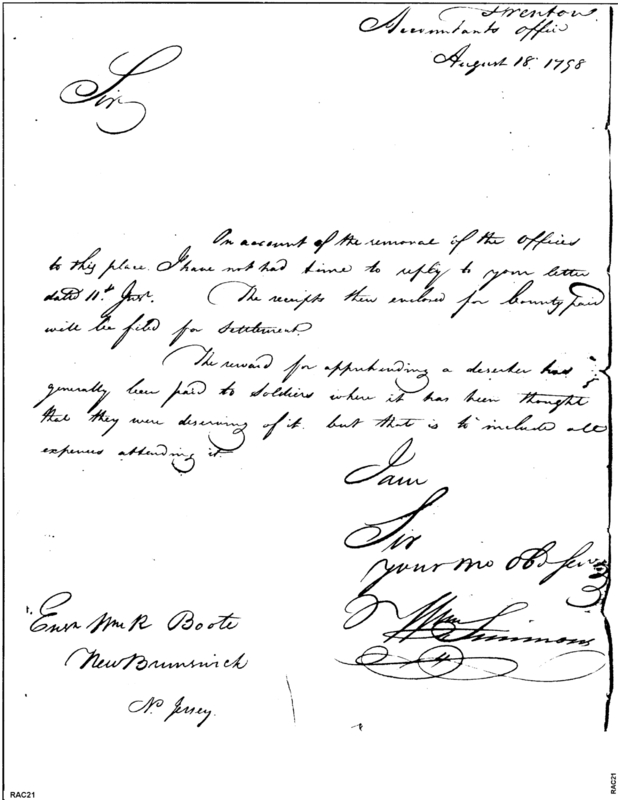 Trenton
Accountants Office
August 18. 1798
Sir
On account of the removal of the offices
to this place. I have not had time to reply to your letter
dated 11th Inst. The receipts then enclosed for bounty paid
will be filed for settlement.
The reward for apprehending a deserter has
generally been paid to soldiers where it has been thought
that they were deserving of it. but that is to include all
expences attending it.
I am
Sir
your mo Obd Serv
Wm Simmons
Ensn Wm R Boote
New Brunswick
N. Jersey.
RAC21
RAC21